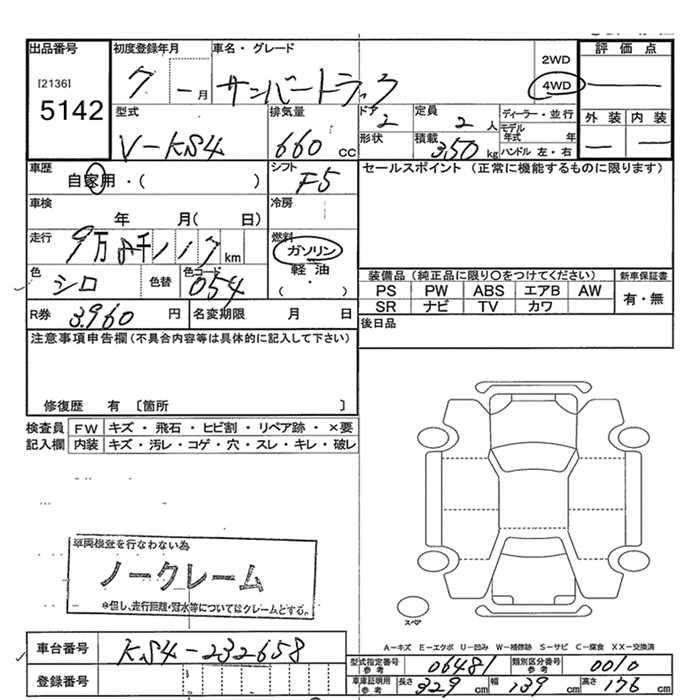 出品番号 初度登録年月 車名・グレード 評価点
[2136] 5142
7 - 月 サンバートラック 2WD 4WD —
外装 内装
— —
型式 排気量 ドア 定員 ディーラー・並行
V-KS4 660 CC 2 2人 モデル年式 年
形状 積載 350 kg ハンドル 左・右
車歴 シフト セールスポイント (正常に機能するものに限ります)
自家用・( ) F5
車検 冷房
年 月( 日)
走行 燃料
9万8千117km ガソリン
軽油
( ・ )
色 色替 色コード 装備品 (純正品に限り○をつけてください) 新車保証書
シロ 054
PS PW ABS エアB AW 有・無
SR ナビ TV カワ
R券 3,960 円 名変期限 月 日 後日品
注意事項申告欄(不具合内容等は具体的に記入して下さい)
修復歴 有 〔箇所 〕
検査員 FW キズ・飛石・ヒビ割・リペア跡・×要
記入欄 内装 キズ・汚レ・コゲ・穴・スレ・キレ・破レ
車両検査を行なわない為
ノークレーム
*但し、走行距離・冠水等についてはクレームとする。
スペア
A−キズ E−エクボ U−凹み W−補修跡 S−サビ C−腐食 XX−交換済
車台番号 KS4-232658
型式指定番号 参考 06481 類別区分番号 参考 0010
登録番号
車庫証明用 参考 長さ 329 cm 幅 139 cm 高さ 176 cm